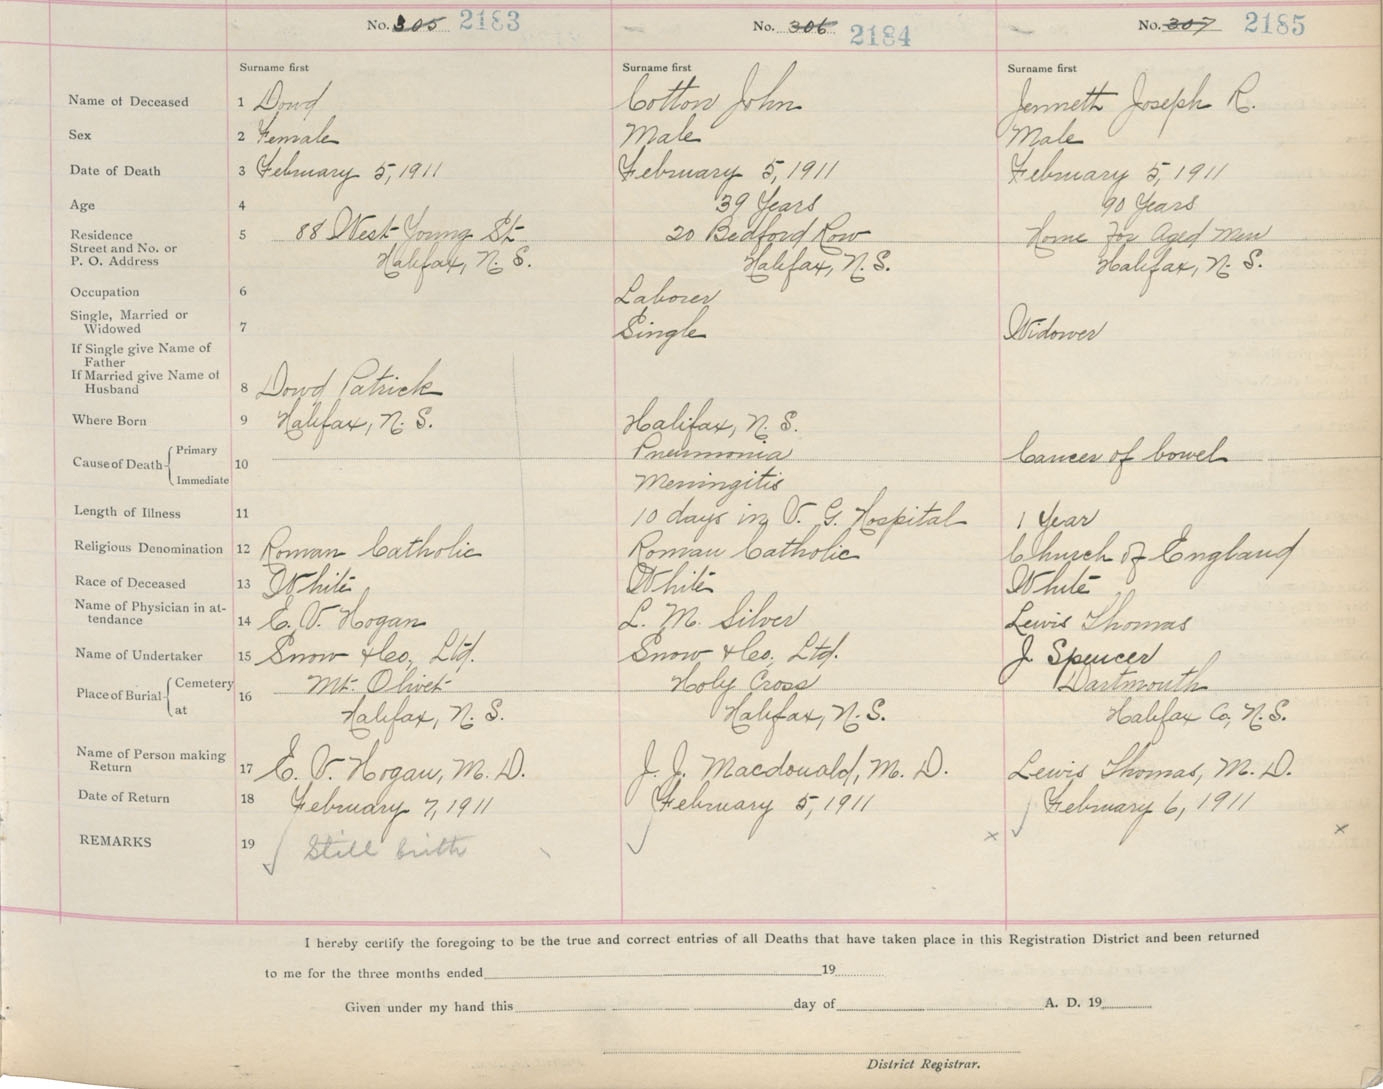 No. 305 2183 No. 306 2184 No. 307 2185
Surname first Surname first Surname first
Name of Deceased 1 Dowd Cotton John Jenneth Joseph R.
Sex 2 Female Male Male
Date of Death 3 February 5, 1911 February 5, 1911 February 5, 1911
Age 4 39 Years 90 Years
Residence 5 88 West Young St. 20 Bedford Row Home For Aged Men
Street and No. or
P. O. Address Halifax, N. S. Halifax, N. S. Halifax, N. S.
Occupation 6 Laborer
Single, Married or
Widowed 7 Single Widower
If Single give Name of
Father
If Married give Name of
Husband 8 Dowd Patrick
Where Born 9 Halifax, N. S. Halifax, N. S.
Cause of Death Primary 10 Pneumonia Cancer of bowel
Immediate Meningitis
Length of Illness 11 10 days in V. G. Hospital 1 Year
Religious Denomination 12 Roman Catholic Roman Catholic Church of England
Race of Deceased 13 White White White
Name of Physician in at-
tendance 14 E. V. Hogan L. M. Silver Lewis Thomas
Name of Undertaker 15 Snow & Co., Ltd. Snow & Co., Ltd. J. Spencer
Place of Burial Cemetery 16 Mt. Olivet Holy Cross Dartmouth
at Halifax, N. S. Halifax, N. S. Halifax Co, N. S.
Name of Person making
Return 17 E. V. Hogan, M. D. J. J. Macdonald, M. D. Lewis Thomas, M. D.
Date of Return 18 February 7, 1911 February 5, 1911 February 6, 1911
REMARKS 19 Still birth x x
I hereby certify the foregoing to be the true and correct entries of all Deaths that have taken place in this Registration District and been returned
to me for the three months ended 19
Given under my hand this day of A. D. 19
District Registrar.